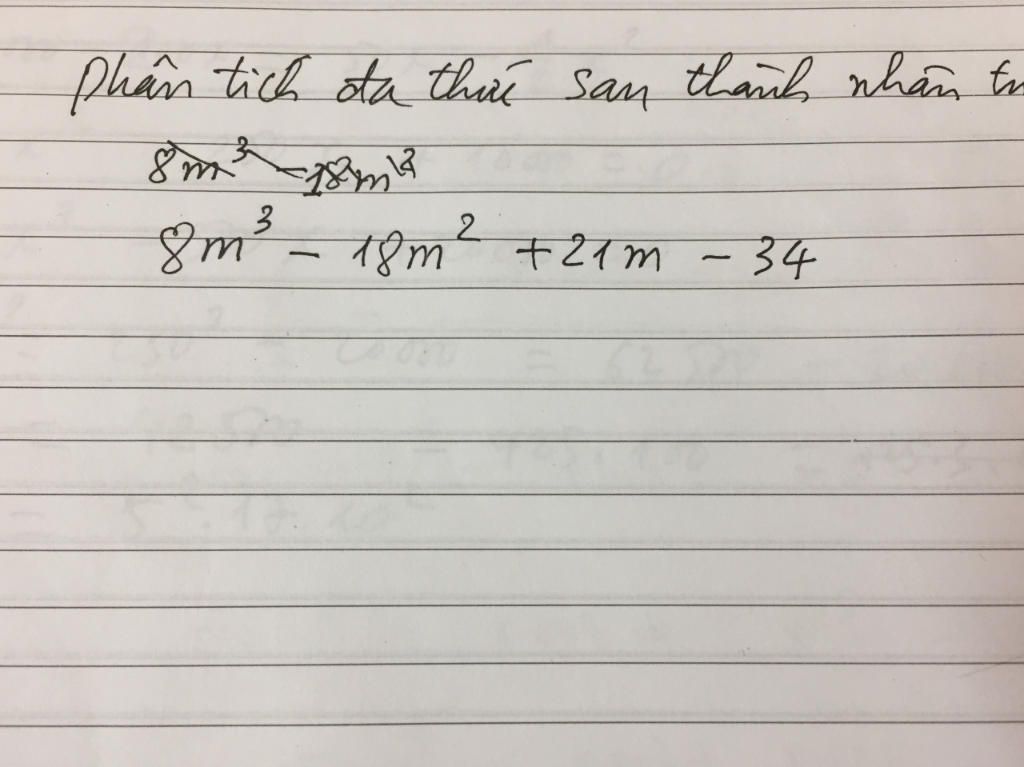 phân tích đa thức sau thành nhân tử
8m³ - 18m²
8m³ - 18m² + 21m - 34